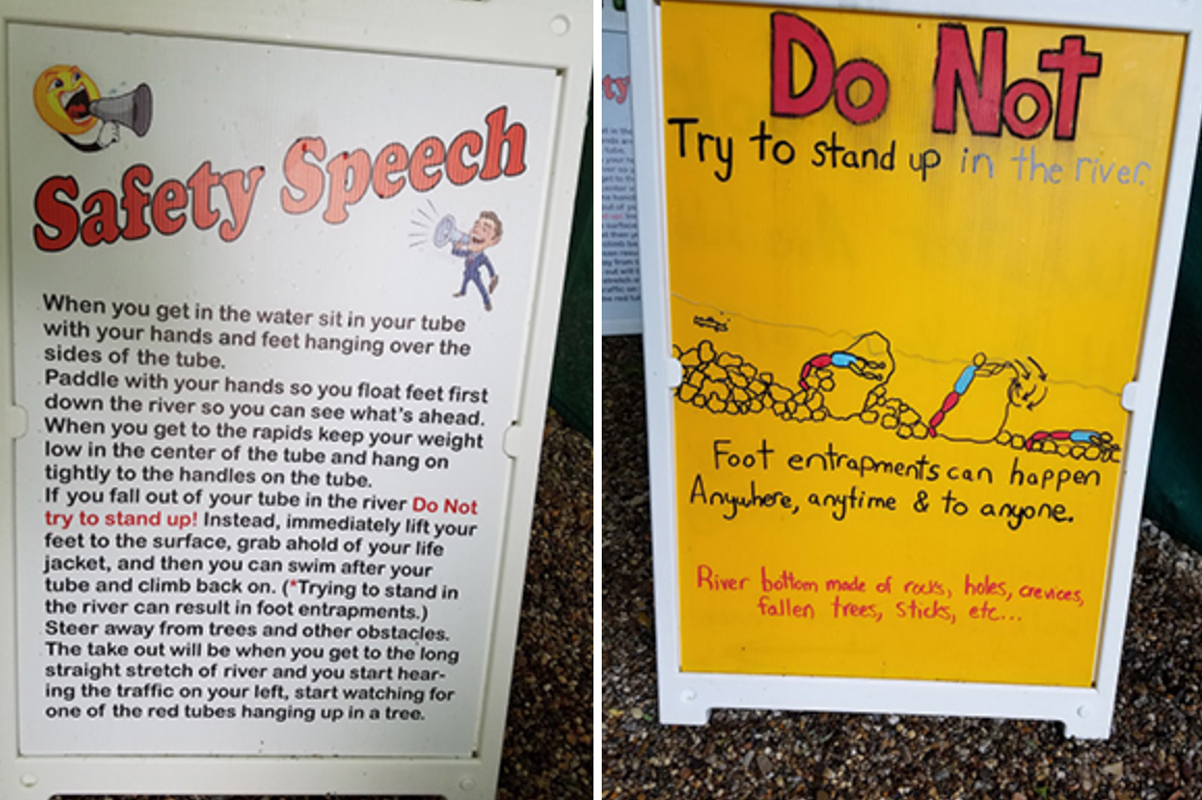 Safety Speech
When you get in the water sit in your tube
with your hands and feet hanging over the
sides of the tube.
Paddle with your hands so you float feet first
down the river so you can see what's ahead.
When you get to the rapids keep your weight
low in the center of the tube and hang on
tightly to the handles on the tube.
If you fall out of your tube in the river Do Not
try to stand up! Instead, immediately lift your
feet to the surface, grab ahold of your life
jacket, and then you can swim after your
tube and climb back on. (*Trying to stand in
the river can result in foot entrapments.)
Steer away from trees and other obstacles.
The take out will be when you get to the long
straight stretch of river and you start hear-
ing the traffic on your left, start watching for
one of the red tubes hanging up in a tree.
Do Not
Try to stand up in the river.
Foot entrapments can happen
Anywhere, anytime & to anyone.
River bottom made of rocks, holes, crevices,
fallen trees, sticks, etc...